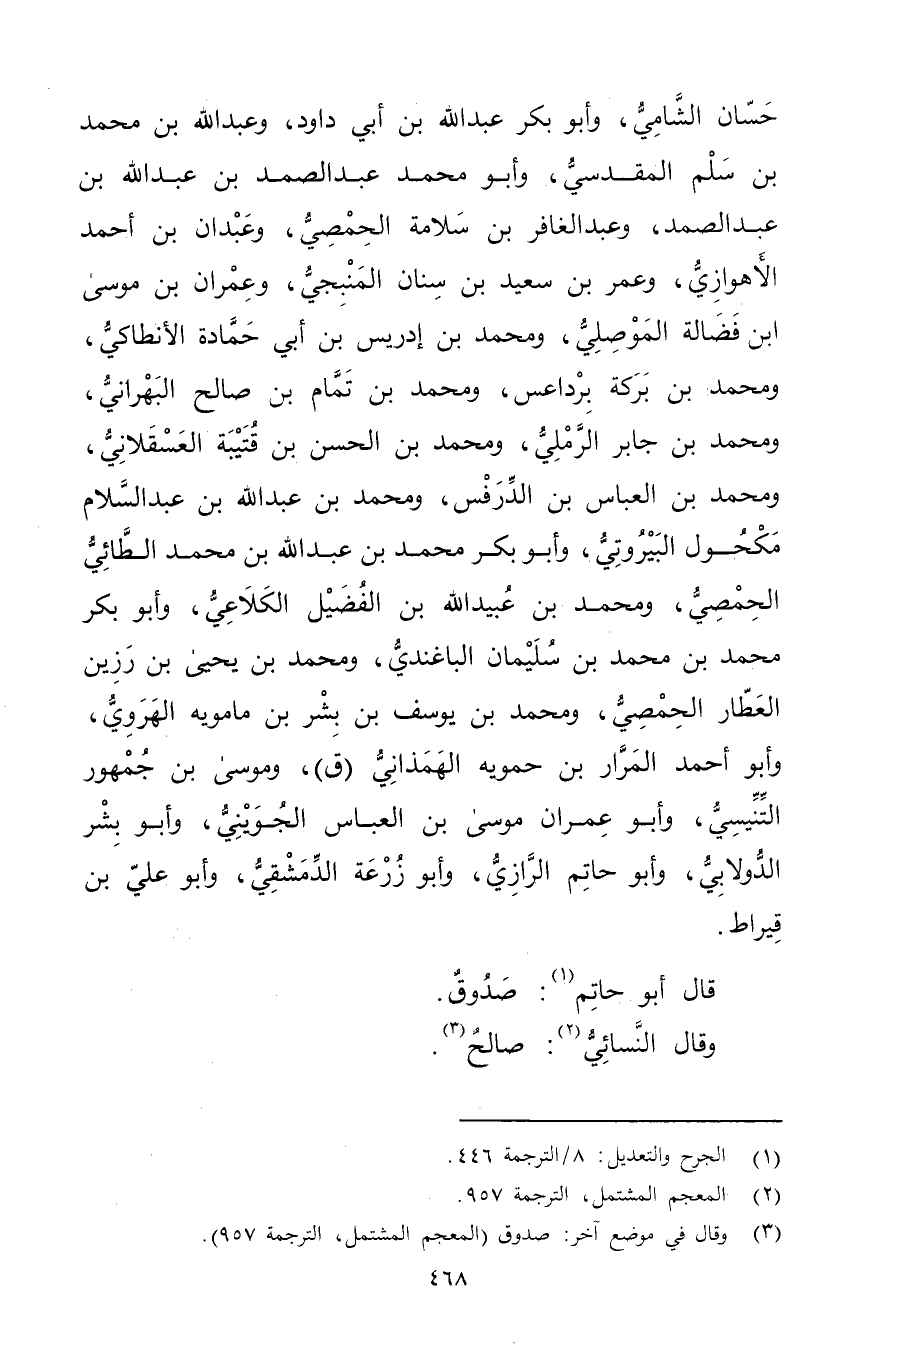 حَسّان الشَّامِيُّ، وأبو بكر عبدالله بن أبي داود، وعبدالله بن محمد
بن سَلْم المقدسيُّ، وأبو محمد عبدالصمد بن عبدالله بن
عبدالصمد، وعبدالغافر بن سَلامة الحِمْصِيُّ، وعَبْدان بن أحمد
الأَهوازِيُّ، وعمر بن سعيد بن سِنان المَنْبِجيُّ، وعِمْران بن موسىٰ
ابن فَضَالة المَوْصِلِيُّ، ومحمد بن إدريس بن أبي حَمَّادة الأنطاكيُّ،
ومحمد بن بَرَكة بِرْداعس، ومحمد بن تَمَّام بن صالح البَهْرانيُّ،
ومحمد بن جابر الرَّمْلِيُّ، ومحمد بن الحسن بن قُتَيْبَة العَسْقَلانِيُّ،
ومحمد بن العباس بن الدِّرَفْس، ومحمد بن عبدالله بن عبدالسَّلام
مَكْحُول البَيْرُوتِيُّ، وأبو بكر محمد بن عبدالله بن محمد الطَّائِيُّ
الحِمْصِيُّ، ومحمد بن عُبيدالله بن الفُضَيْل الكَلَاعِيُّ، وأبو بكر
محمد بن محمد بن سُلَيْمان الباغنديُّ، ومحمد بن يحيىٰ بن رَزِين
العَطّار الحِمْصِيُّ، ومحمد بن يوسف بن بِشْر بن مامويه الهَرَوِيُّ،
وأبو أحمد المَرَّار بن حمويه الهَمَذانِيُّ (ق)، وموسىٰ بن جُمْهور
التِّنِّيسِيُّ، وأبو عِمران موسىٰ بن العباس الجُوَيْنِيُّ، وأبو بِشْر
الدُّولابِيُّ، وأبو حاتِم الرَّازِيُّ، وأبو زُرْعَة الدِّمَشْقِيُّ، وأبو عليّ بن
قِيراط.
قال أبو حاتِم(١): صَدُوقٌ.
وقال النَّسائِيُّ(٢): صالحٌ(٣).
(١) الجرح والتعديل: ٨/الترجمة ٤٤٦.
(٢) المعجم المشتمل، الترجمة ٩٥٧.
(٣) وقال في موضع آخر: صدوق (المعجم المشتمل، الترجمة ٩٥٧).
٤٦٨